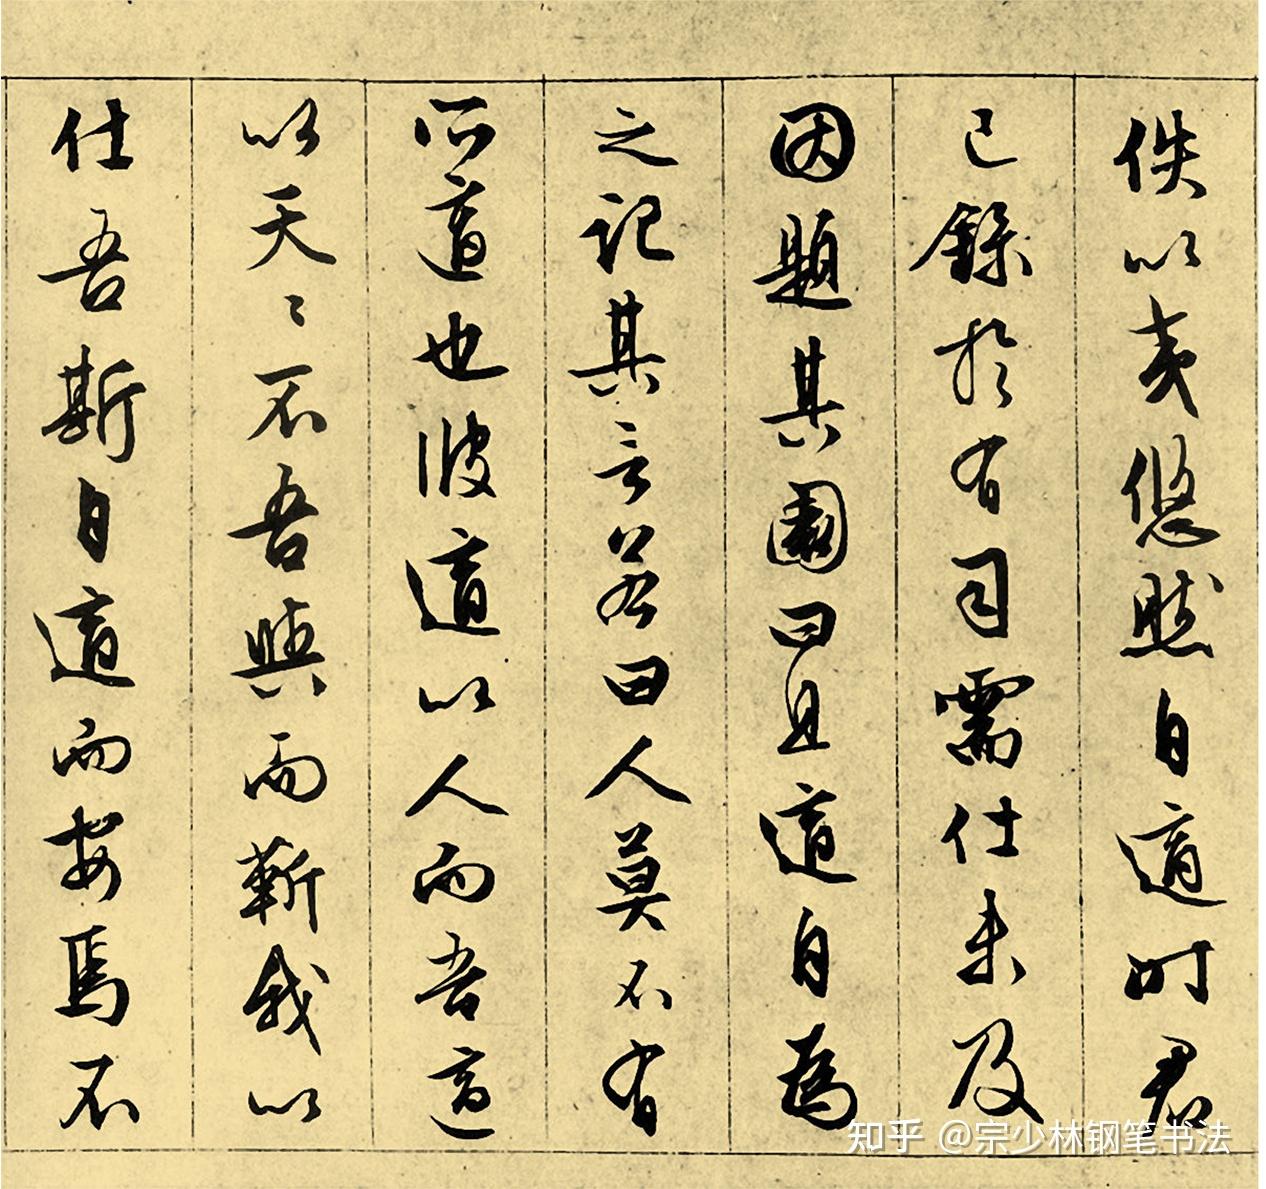 佚以夷悠然自適时君
已錄於有司需仕未及
因題其園曰且適自為
之記其言若曰人莫不有
所適也彼適以人而吾適
以天〻不吾與而蘄我以
仕吾斯自適而安焉不
知乎 @宗少林钢笔书法